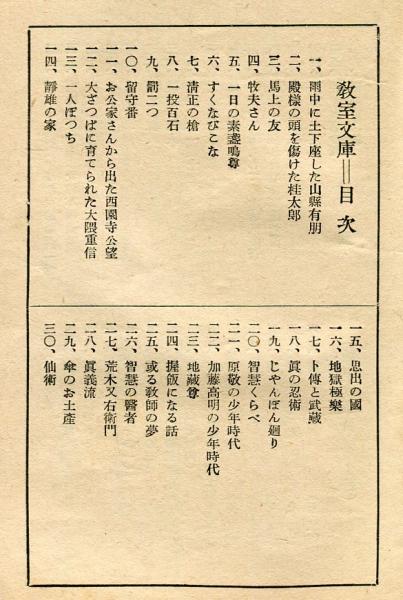 教室文庫＝目次
一、雨中に土下座した山縣有朋
二、殿樣の頭を傷けた桂太郎
三、馬上の友
四、牧夫さん
五、一日の素盞嗚尊
六、すくなびこな
七、清正の槍
八、一投百石
九、罰二つ
一〇、留守番
一一、お公家さんから出た西園寺公望
一二、大ざつぱに育てられた大隈重信
一三、一人ぼつち
一四、靜雄の家
一五、思出の國
一六、地獄極樂
一七、卜傳と武藏
一八、眞の忍術
一九、じやんぽん廻り
二〇、智慧くらべ
二一、原敬の少年時代
二二、加藤高明の少年時代
二三、地藏尊
二四、握飯になる話
二五、或る敎師の夢
二六、智慧の醫者
二七、荒木又右衛門
二八、眞義流
二九、傘のお土產
三〇、仙術